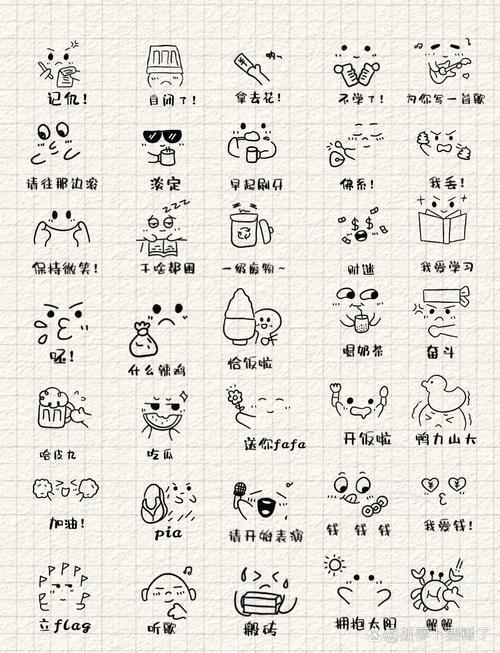 记仇！
自闭了！
拿去花！
哟~
不学了！
为你写一首歌
请往那边滚
淡定
早起刷牙
佛系！
我丢！
保持微笑！
zzz
干啥都困
一级废物~
财迷
我爱学习
呸！
什么辣鸡
恰饭啦
喝奶茶
奋斗
哈皮九
吃瓜
送你fafa
开饭啦
鸭力山大
加油！
pia
请开始表演
钱 钱 钱
我爱钱！
立flag
听歌
搬砖
拥抱太阳
蟹蟹